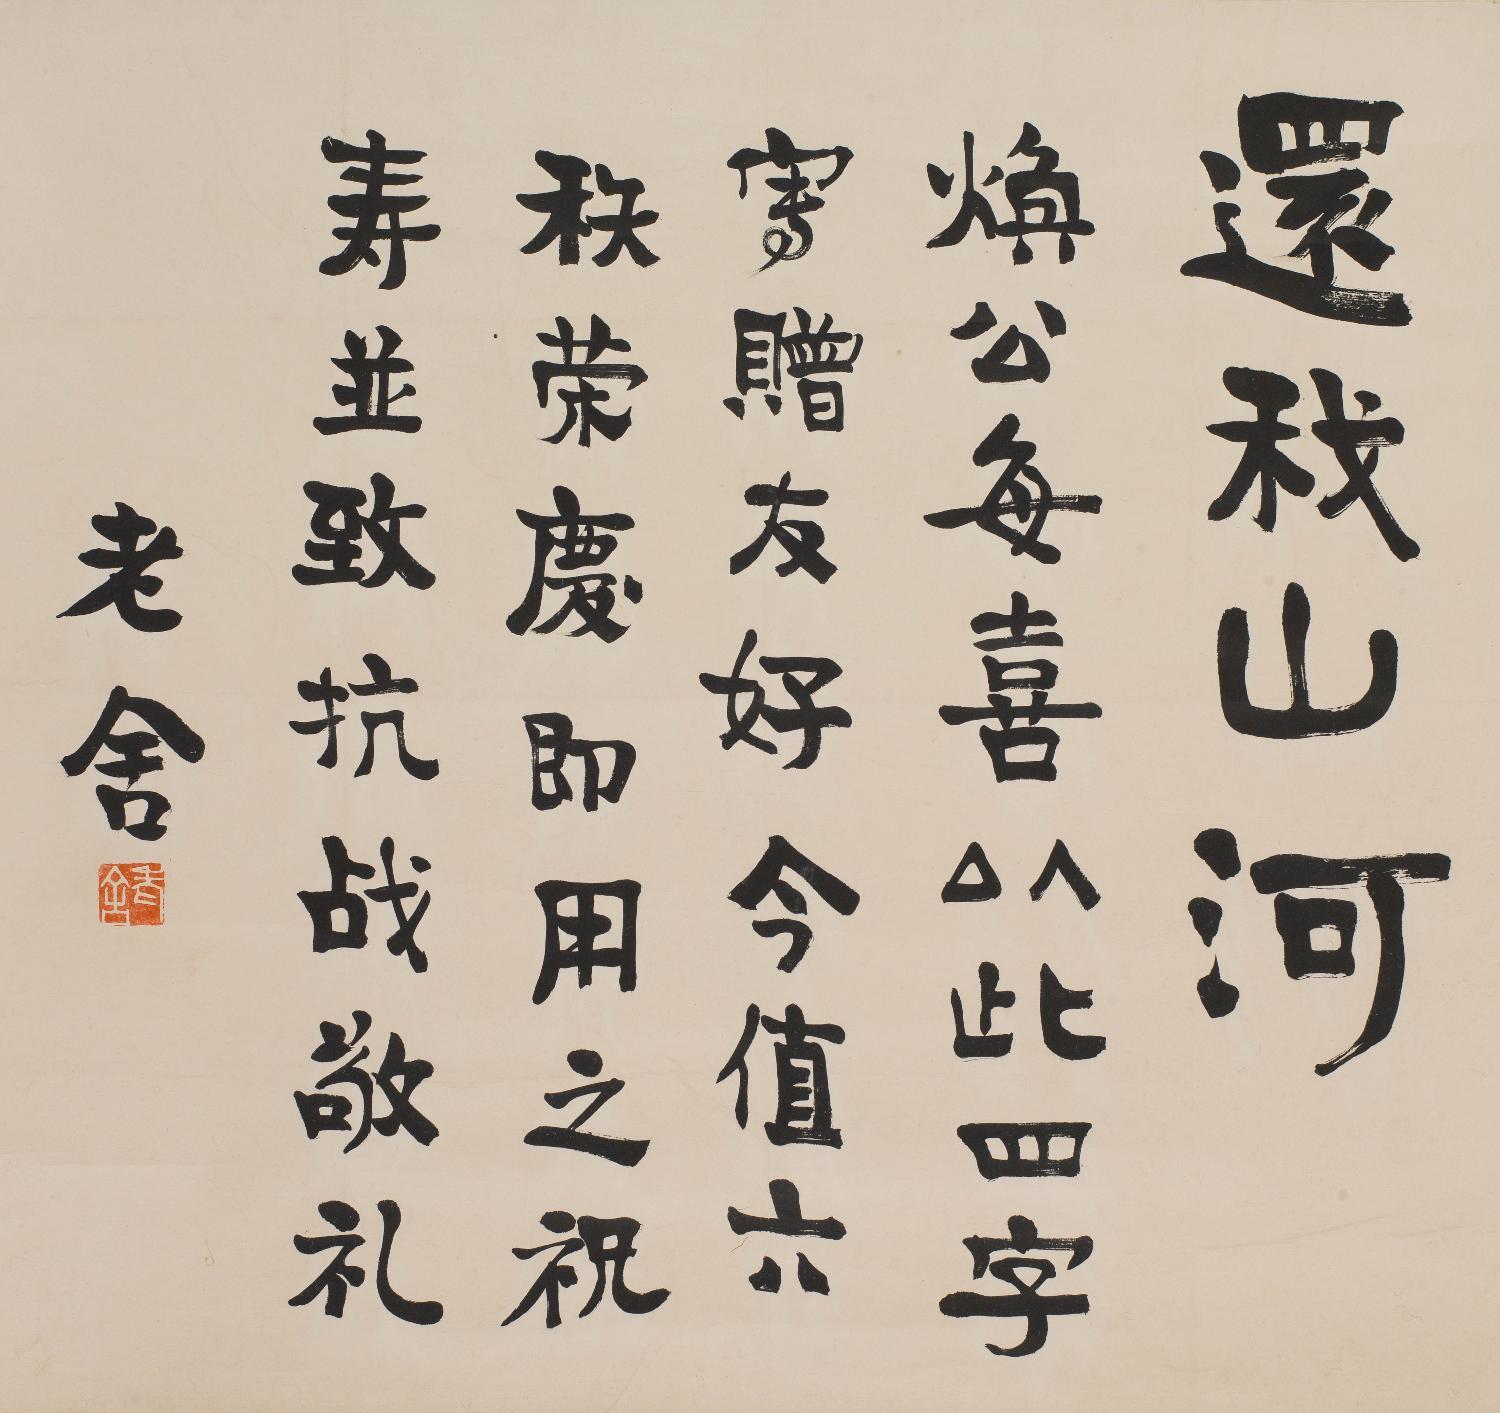 還我山河
煥公每喜以此四字
寫贈友好今值六
秩荣慶即用之祝
寿並致抗战敬礼
老舍